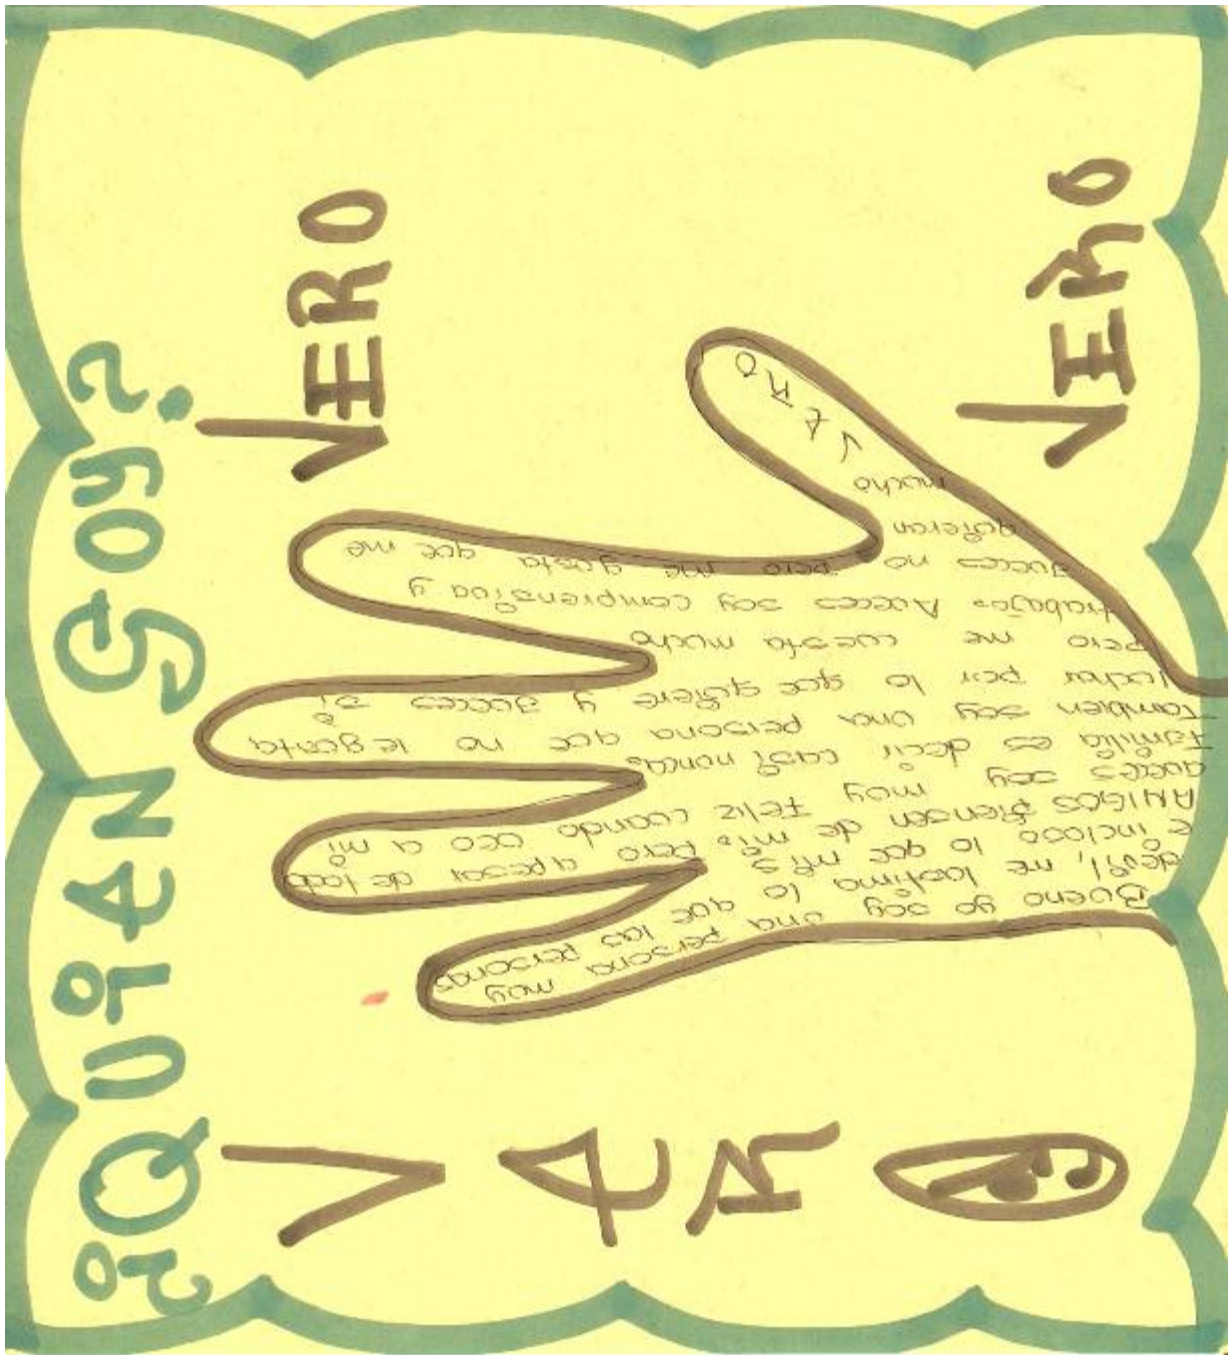 ¿QUiEN SOY?
VERO
VERO
VERO
Bueno yo soy una persona muy
devil, me lastima lo que las personas
e incluso lo que mis
AMIGOS piensen de mi. Pero apesar de todo
aveces soy muy Feliz cuando veo a mi
familia es decir casi nunca.
Tambien soy una persona que no le gusta
luchar por lo que quiere y aveces si
pero me cuesta mucho
trabajo. Aveces soy comprensiva y
aveces no pero me gusta que me
quieran
mucho
VERO